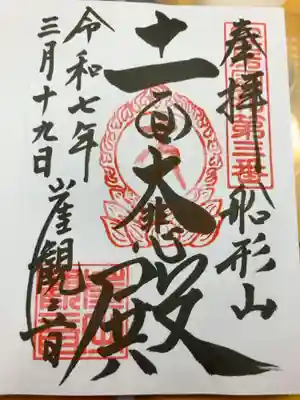 奉拝
船形山
十一面大悲殿
令和七年
三月十九日
崖観音
第三番